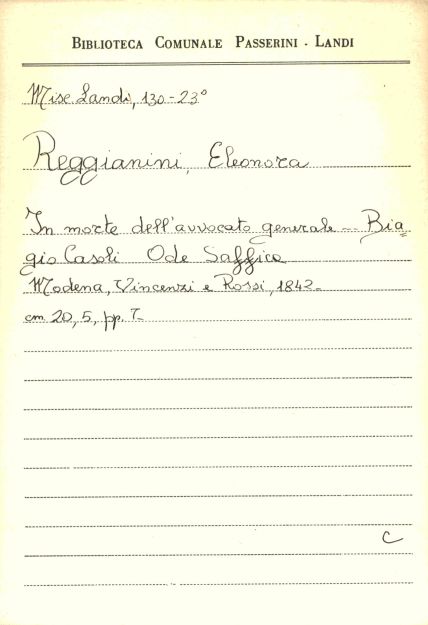 BIBLIOTECA COMUNALE PASSERINI - LANDI
Misc. Landi, 130-23°
Reggianini, Eleonora
In morte dell'avvocato generale ... Bia=
gio Casoli Ode Saffica
Modena, Vincenzi e Rossi, 1842.
cm. 20,5, pp. 7.
C